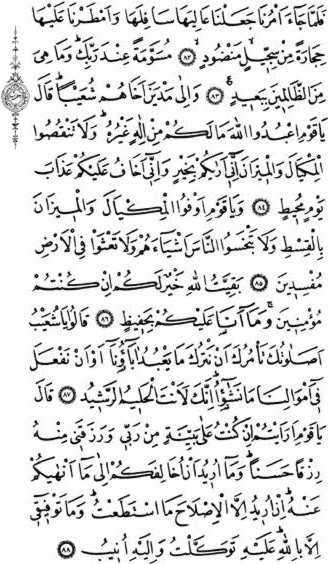 فَلَمَّا جَاءَ اَمْرُنَا جَعَلْنَا عَالِيَهَا سَافِلَهَا وَاَمْطَرْنَا عَلَيْهَا
حِجَارَةً مِنْ سِجّٖيلٍ مَنْضُودٍۙ ﴿٨٢﴾ مُسَوَّمَةً عِنْدَ رَبِّكَؕ وَمَا هِىَ
مِنَ الظَّالِمٖينَ بِبَعٖيدٍࣖ ﴿٨٣﴾ وَاِلٰى مَدْيَنَ اَخَاهُمْ شُعَيْبًاؕ قَالَ
يَا قَوْمِ اعْبُدُوا اللّٰهَ مَا لَكُمْ مِنْ اِلٰهٍ غَيْرُهُؕ وَلَا تَنْقُصُوا
الْمِكْيَالَ وَالْمٖيزَانَ اِنّٖٓى اَرٰيكُمْ بِخَيْرٍ وَاِنّٖٓى اَخَافُ عَلَيْكُمْ عَذَابَ
يَوْمٍ مُحٖيطٍ ﴿٨٤﴾ وَيَا قَوْمِ اَوْفُوا الْمِكْيَالَ وَالْمٖيزَانَ
بِالْقِسْطِ وَلَا تَبْخَسُوا النَّاسَ اَشْيَاءَهُمْ وَلَا تَعْثَوْا فِى الْاَرْضِ
مُفْسِدٖينَ ﴿٨٥﴾ بَقِيَّتُ اللّٰهِ خَيْرٌ لَكُمْ اِنْ كُنْتُمْ
مُؤْمِنٖينَۚ وَمَٓا اَنَا۬ عَلَيْكُمْ بِحَفٖيظٍ ﴿٨٦﴾ قَالُوا يَا شُعَيْبُ
اَصَلٰوتُكَ تَاْمُرُكَ اَنْ نَتْرُكَ مَا يَعْبُدُ اٰبَٓاؤُ۬نَٓا اَوْ اَنْ نَفْعَلَ
فٖٓى اَمْوَالِنَا مَا نَشٰٓؤُاؕ اِنَّكَ لَاَنْتَ الْحَلٖيمُ الرَّشٖيدُ ﴿٨٧﴾ قَالَ
يَا قَوْمِ اَرَاَيْتُمْ اِنْ كُنْتُ عَلٰى بَيِّنَةٍ مِنْ رَبّٖى وَرَزَقَنٖى مِنْهُ
رِزْقًا حَسَنًاؕ وَمَٓا اُرٖيدُ اَنْ اُخَالِفَكُمْ اِلٰى مَٓا اَنْهٰيكُمْ
عَنْهُؕ اِنْ اُرٖيدُ اِلَّا الْاِصْلَاحَ مَا اسْتَطَعْتُؕ وَمَا تَوْفٖيقٖٓى
اِلَّا بِاللّٰهِؕ عَلَيْهِ تَوَكَّلْتُ وَاِلَيْهِ اُنٖيبُ ﴿٨٨﴾